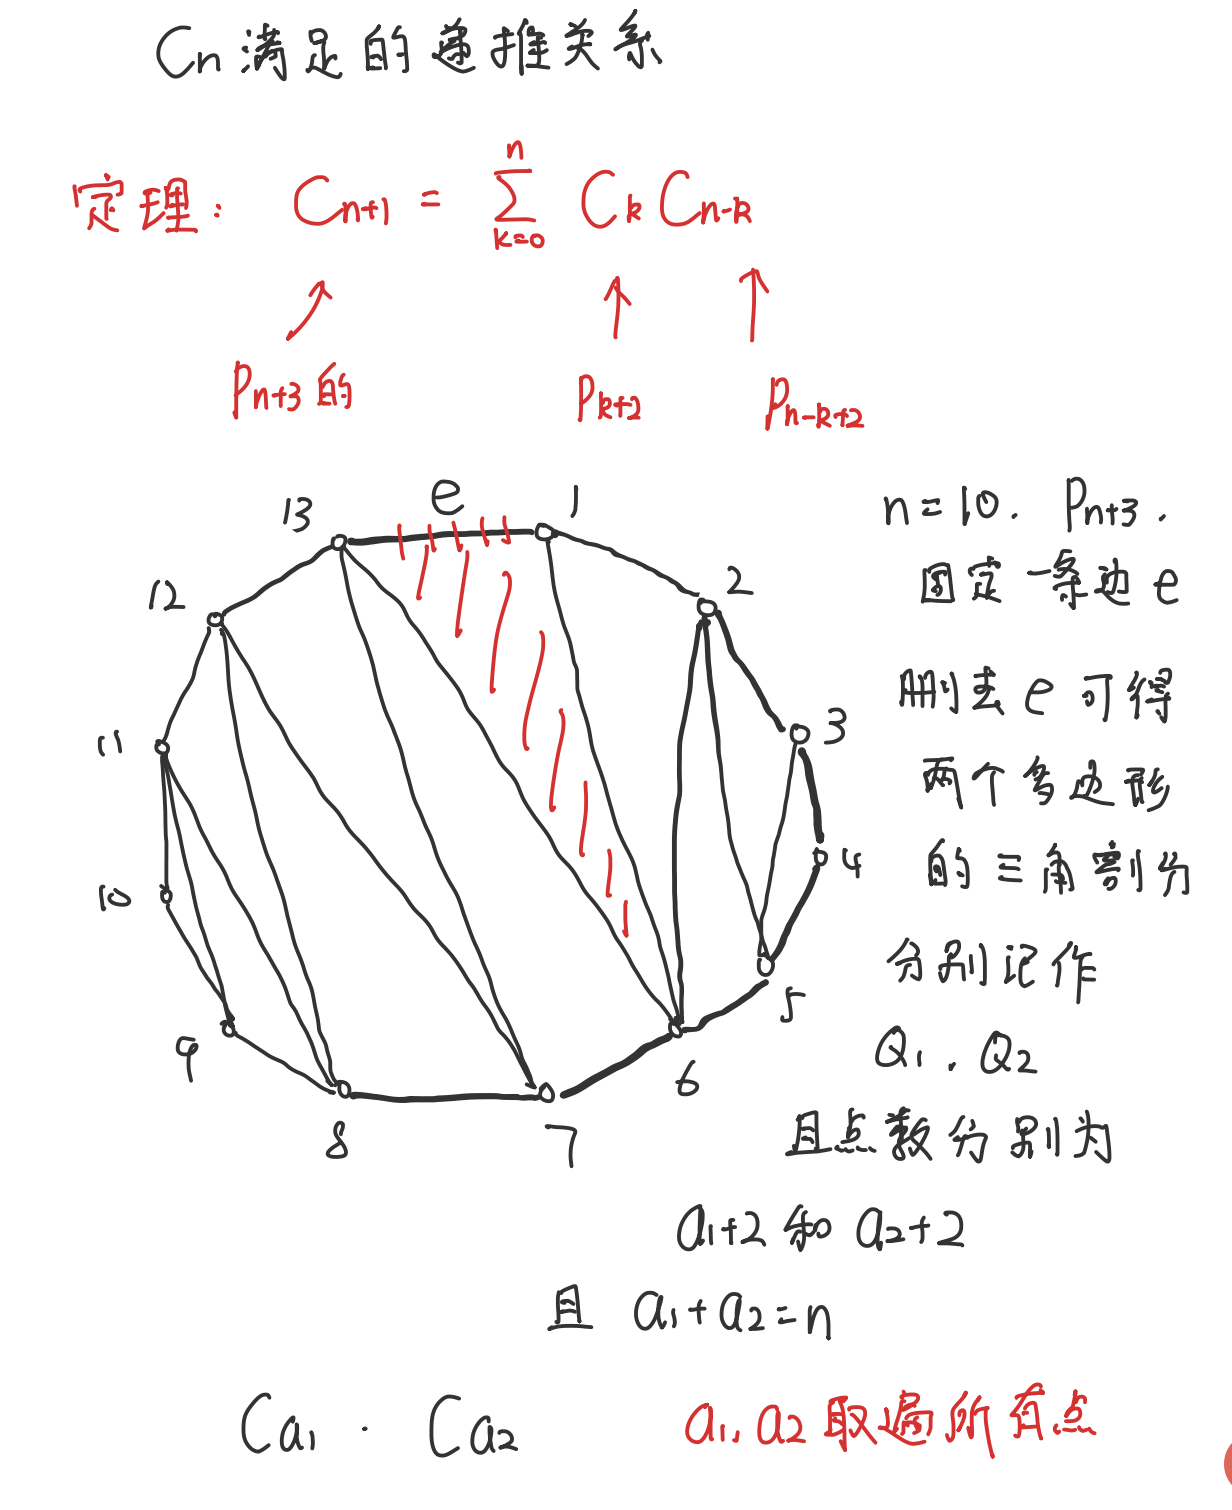 Cn满足的递推关系
定理: C_{n+1} = \sum_{k=0}^{n} C_k C_{n-k}
P_{n+3}的 P_{k+2} P_{n-k+2}
13 e 1
12 2
11 3
10 4
9 5
8 7 6
n=10. P_{n+3}.
固定一条边e
删去e可得
两个多边形
的三角剖分
分别记作
Q_1, Q_2
且点数分别为
a_1+2 和 a_2+2
且 a_1+a_2=n
C_{a_1} · C_{a_2} a_1, a_2 取遍所有点